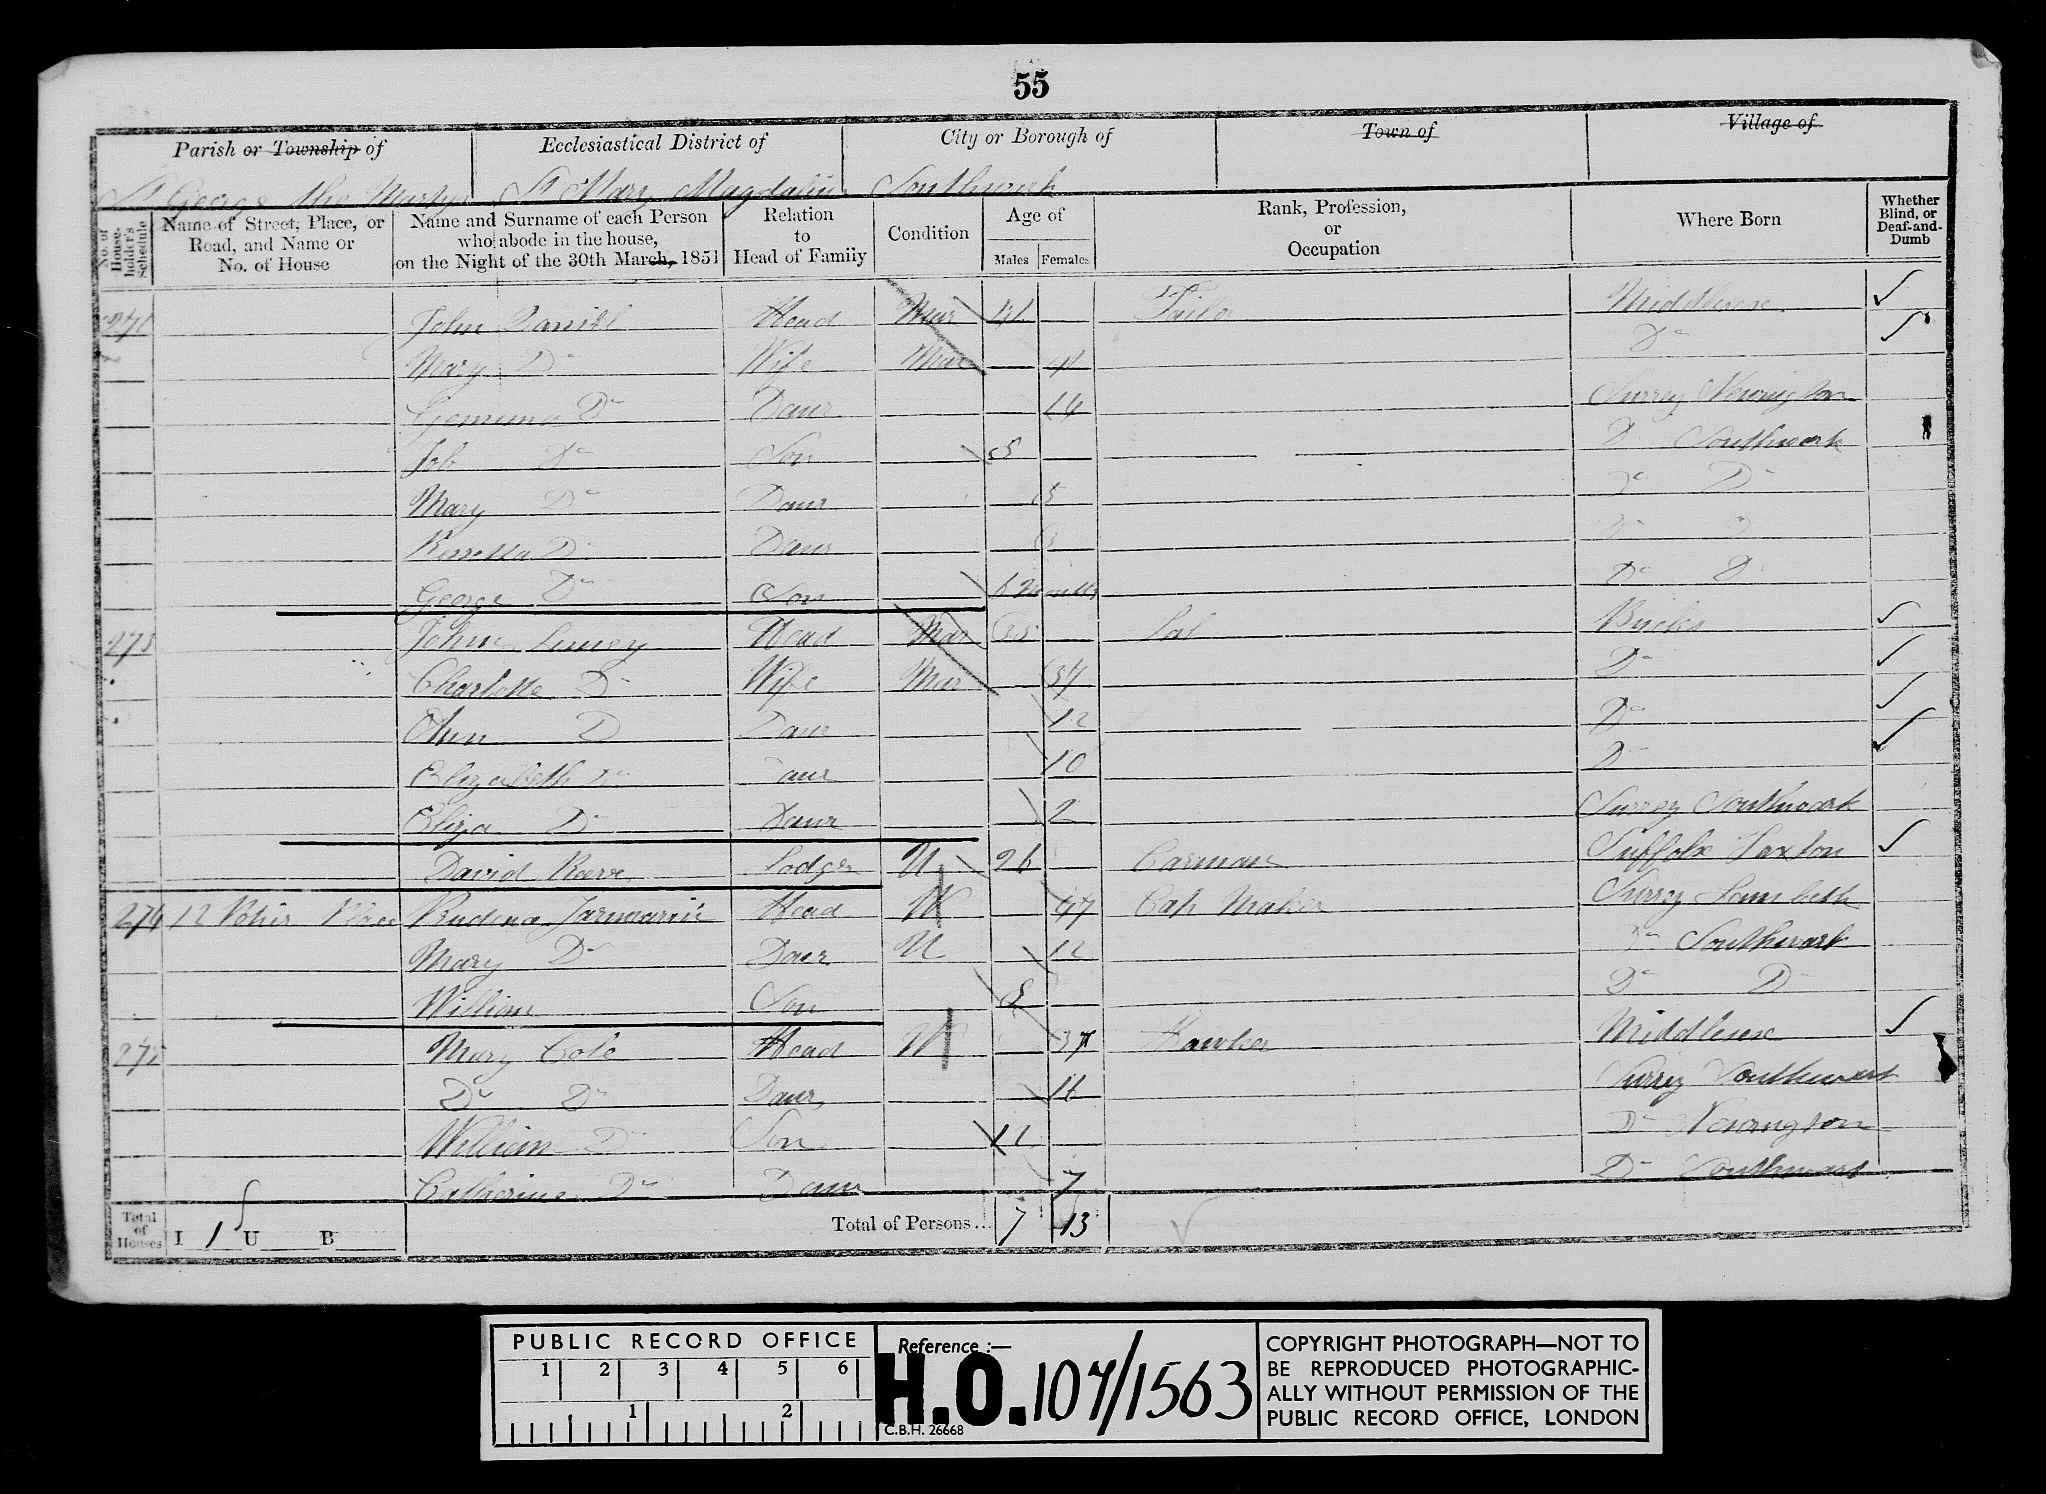 55
Parish or Township of Ecclesiastical District of City or Borough of Town of Village of
St George the Martyr St Mary Magdalin Southwark
No. of House-holder's Schedule
Name of Street, Place, or Road, and Name or No. of House
Name and Surname of each Person who abode in the house, on the Night of the 30th March, 1851
Relation to Head of Family
Condition
Age of
Males Females
Rank, Profession, or Occupation
Where Born
Whether Blind, or Deaf-and-Dumb
John Daniel Head Mar 41 Middlesex
Mary Do Wife Mar Do
Do Daur 14 Surrey Newington
Job Do Son 8 Do Southwark
Mary Do Daur 5 Do Do
Do Daur 3 Do Do
George Do Son 6 Months Do Do
273 John Head Mar 35 Lab Bucks
Charlotte Do Wife Mar 34 Do
Ann Do Daur 12 Do
Elizabeth Do Daur 10 Do
Eliza Do Daur 2 Surrey Southwark
David Lodger U 26 Carman Suffolk
274 12 Place Head W 47 Cap Maker Surrey Lambeth
Mary Do Daur U 12 Do Southwark
William Son 8 Do Do
275 Mary Cole Head W 37 Hawker Middlesex
Do Do Daur 16 Surrey Southwark
William Do Son 11 Do Newington
Catherine Do Daur 7 Do Southwark
Total of Houses I 1 U B Total of Persons... 7 13
PUBLIC RECORD OFFICE
1 2 3 4 5 6
1 2
Reference :—
H.O. 107/1563
C.B.H. 26668
COPYRIGHT PHOTOGRAPH—NOT TO
BE REPRODUCED PHOTOGRAPHIC-
ALLY WITHOUT PERMISSION OF THE
PUBLIC RECORD OFFICE, LONDON